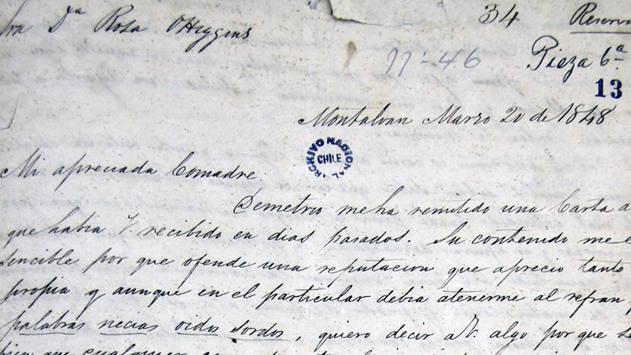 Dª Rosa OHiggins
34 Reserva
22-46
Pieza 6ª
13
Montalvan Marzo 20 de 1848
ARCHIVO NACIONAL
CHILE
Mi apreciada Comadre.
Demetrio me ha remitido una Carta a
que habia V. recibido en dias pasados. Su contenido me e
sencible por que ofende una reputacion que aprecio tanto
propia y aunque en el particular debia atenerme al refran
palabras necias oidos sordos, quiero decir a V. algo por que
bien que cualquier